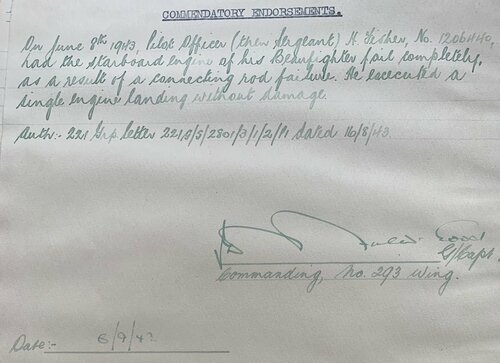 COMMENDATORY ENDORSEMENTS.
On June 8th 1943, Pilot Officer (then Sergeant) H. Fisher, No.
had the starboard engine of his Beaufighter fail completely,
as a result of a connecting rod failure. He executed a
single engine landing without damage.
Auth:- 221 Grp. letter dated 16/8/43
G/Capt.
Commanding, No. 293 Wing.
Date:- 6/9/43